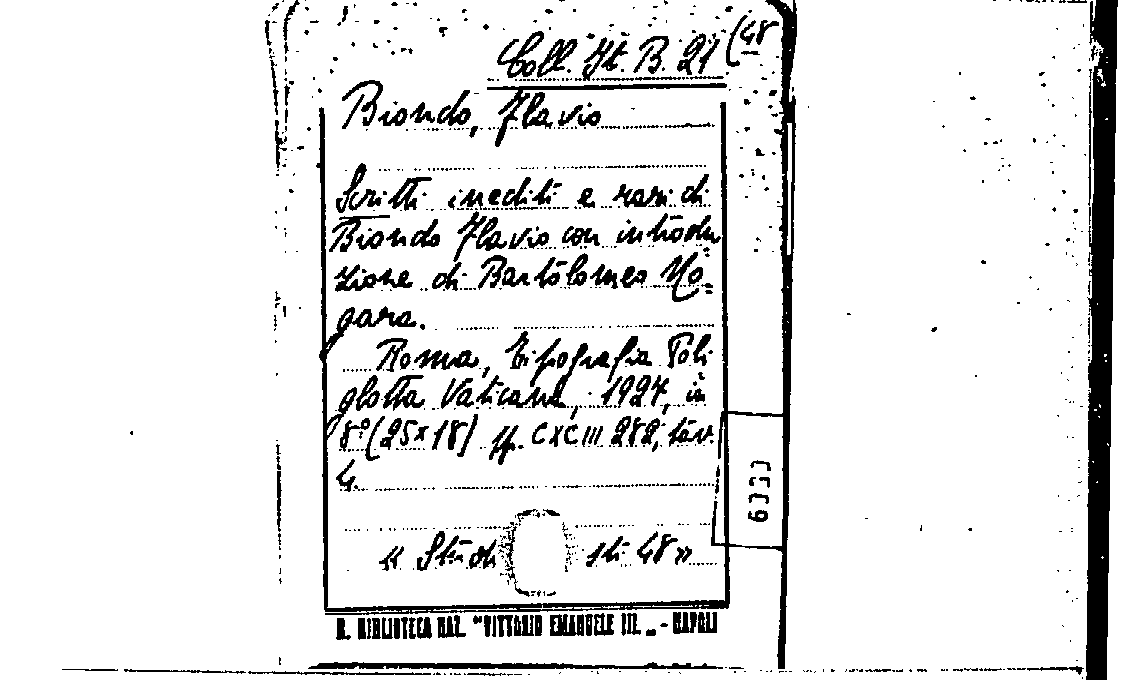 Coll. It. B. 21 (48
Biondo, Flavio
Scritti inediti e rari di
Biondo Flavio con introdu
zione di Bartolomeo No-
gara.
Roma, Tipografia Poli
glotta Vaticana, 1927, in
8° (25x18) pp. CXCIII 282, tav.
4.
« Studi sti 48 »
R. BIBLIOTECA NAZ. "VITTORIO EMANUELE III. „ - NAPOLI